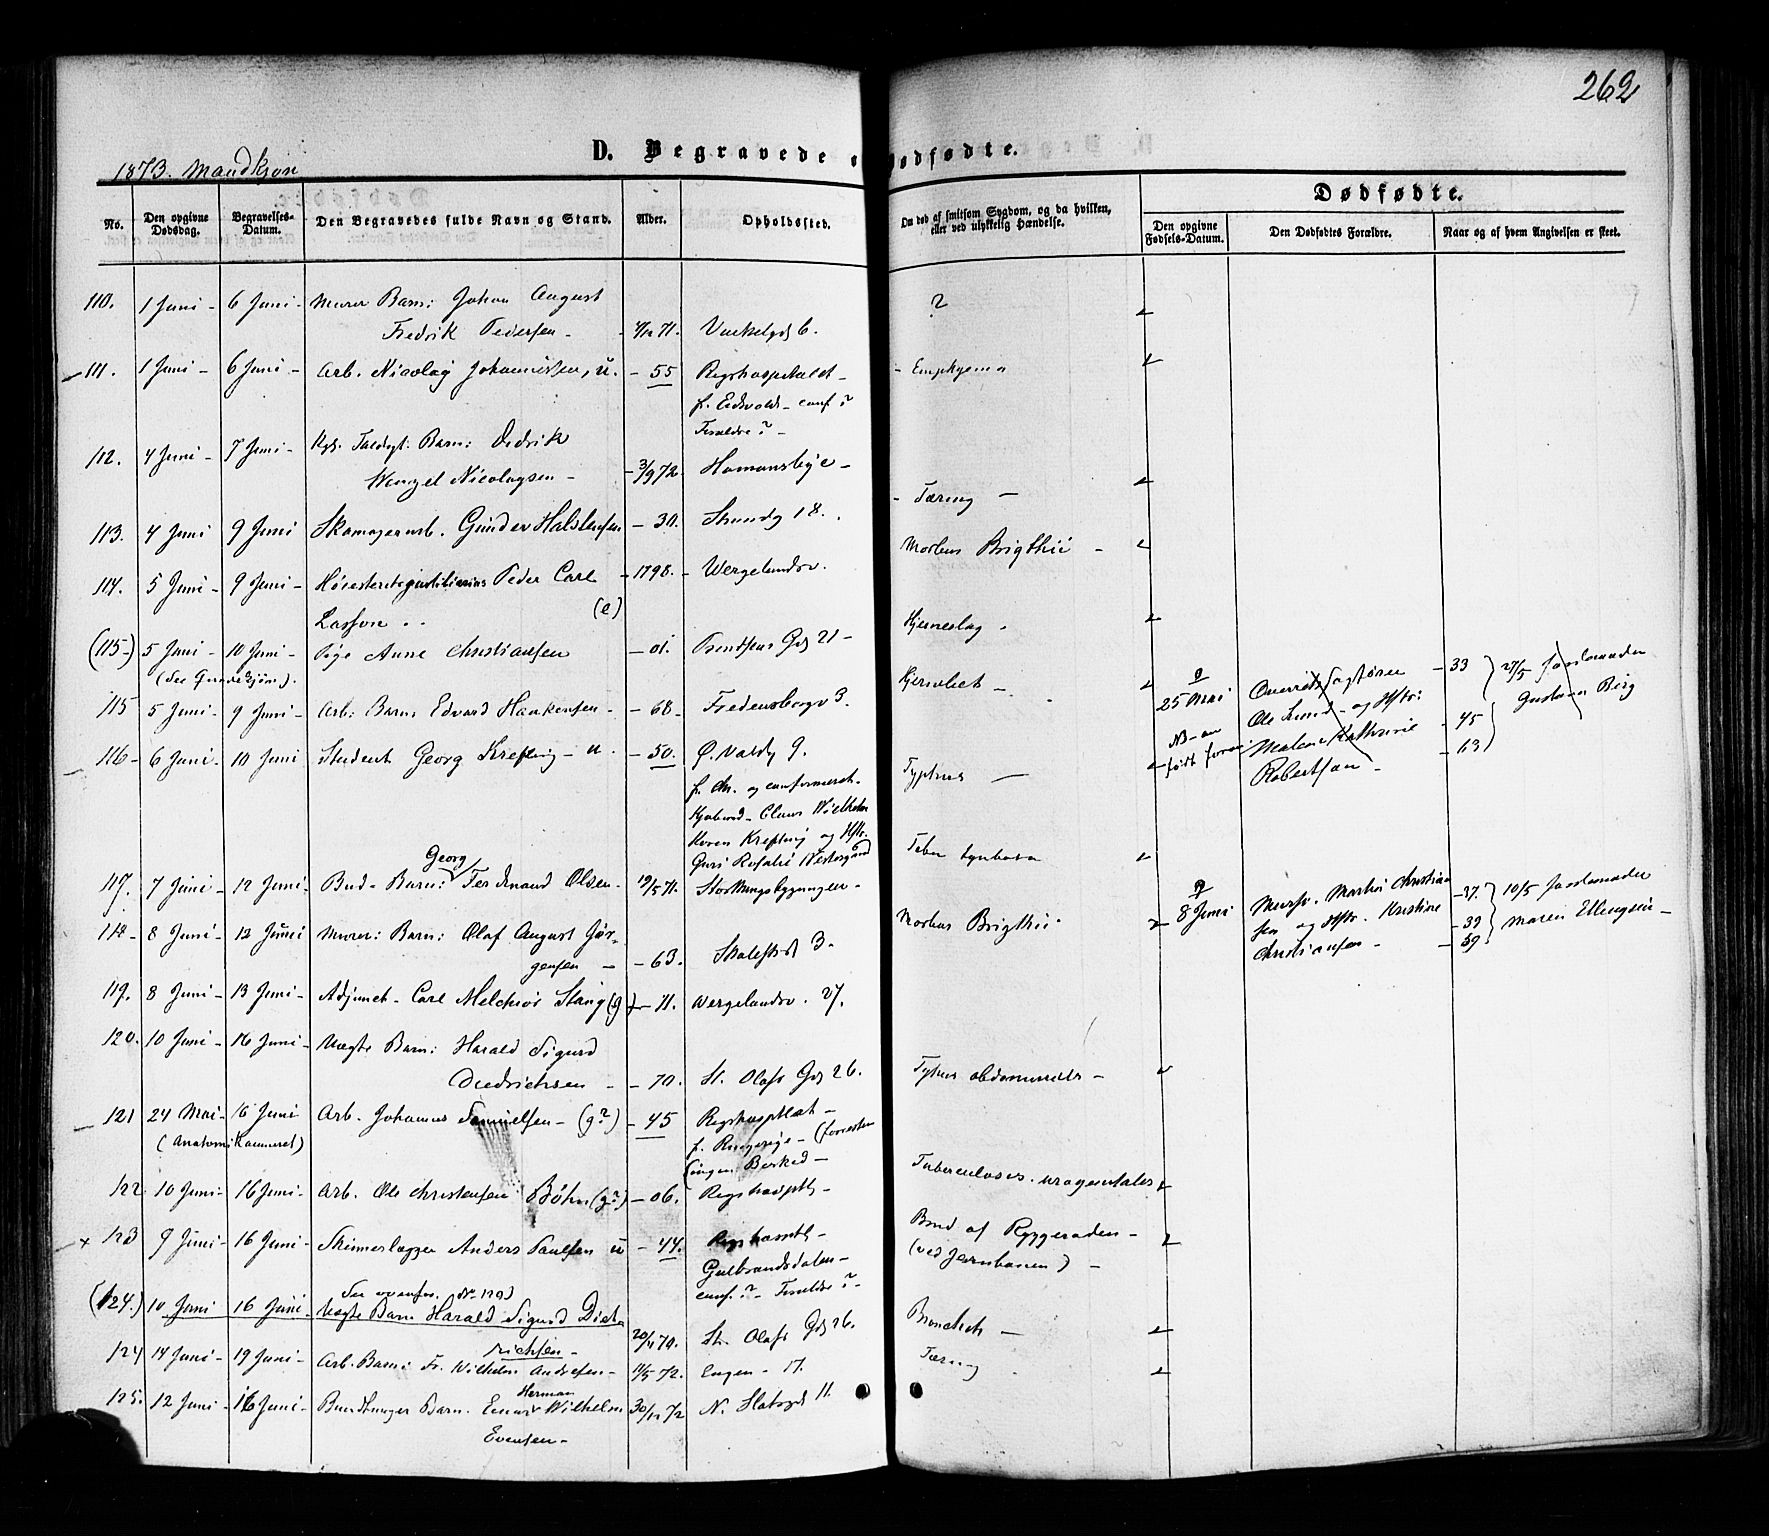 262
1873. Mandkjøn
D. Begravede o
Dødfødte.
Dødfødte.
No.
Den opgivne Dødsdag.
Begravelses-Datum.
Den Begravedes fulde Navn og Stand.
Alder.
Opholdssted.
Om død af smitsom Sygdom, og da hvilken, eller ved ulykkelig Hændelse.
Den opgivne Fødsels-Datum.
Den Dødfødtes Forældre.
Naar og af hvem Angivelsen er skeet.
110. 1 Juni - 6 Juni - Murer Barn: Johan August ?
Fredrik Pedersen - 71. 6.
111. 1 Juni - 6 Juni - Arb. Nicolay Johannessen, u. - 55 Rigshospitalet - Emphysema
f. Eidsvold - conf ?
Forældre ? -
112. 4 Juni - 7 Juni - Barn: Didrik
Wenzel Nicolaysen - 3/9 72. Homansbye - Tæring -
113. 4 Juni 9 Juni Skomagerarb. Gunder Halstensen - 30. Strandg 18. Morbus Brigthii -
114. 5 Juni - 9 Juni - Høiesteretsjustitiarius Peder Carl - 1798. - Wergelandsv.
Lasson (e) Hjerneslag.
(115-) 5 Juni - 10 Juni - Pige Anne Christiansen - 01. Gd 21 -
(see Qvindekjøn).
115 5 Juni - 9 Juni - Arb: Barn: Edvard Haakensen - - 68 - Fredensborgv 3.
25 Mai Ole Lund - og Hstr: - 33 27/5 Jordemoder
Malene Kathrine - 45 Gustava Berg
Robertsen - - 63
116 - 6 Juni - 10 Juni Student Georg Krefting - u. - 50. Ø. Voldg 9. Typhus -
f. Chr. og confirmeret -
Claus Wilhelm
Koren Krefting og Hstr.
Guri Rosalie Westergaard
117. 7 Juni - 12 Juni - Bud - Barn: Georg Ferdinand Olsen - 19/5 71. Storthingsbygningen -
118 - 8 Juni - 12 Juni Murer: Barn: Olaf August Jør-
gensen - - 63. 3 - Morbus Brigthii
8 Juni Mursv. Martin Christian - 37. 10/5 Jordemoder
sen og Hstr. Kristine - 39 Maren Ellingsen -
Christiansen - - 59
119. 8 Juni - 13 Juni - Adjunct - Carl Melchior Stang (g) - 11. Wergelandsv. 27.
120. 10 Juni - 16 Juni - Vægter Barn: Harald Sigurd
Diedrichsen - - 70. St. Olafs Gd 26. Typhus abdominalis -
121 24 Mai - 16 Juni Arb. Johannes Samuelsen - (g?) - 45 Rigshospitalet -
(Anatomikammeret) f. Ringerige - (forresten
ingen Besked -
122 10 Juni - 16 Juni - Arb. Ole Christensen Bøhn (g?) - 06. Rigshospitl - Tuberculosis urogenitales
123 9 Juni - 16 Juni - Skinnelægger Anders Paulsen u - 44. Brud af Ryggraden -
Gulbrandsdalen - (ved Jernbanen) -
conf. ? - Forældre ? -
(124.) 10 Juni 16 Juni - See ovenfor. No 120)
Vægter Barn Harald Sigurd Died
richsen - 20/4 70. St. Olafs Gd 26. Bronchit -
124 14 Juni - 19 Juni - Arb. Barn: Fr. Wilhelm Andresen - 11/5 72. Engen - 17. Tæring
125. 12 Juni - 16 Juni - Barn. Einar Herman Wilhelm 30/12 72 N. Slotsgd 11.
Evensen -